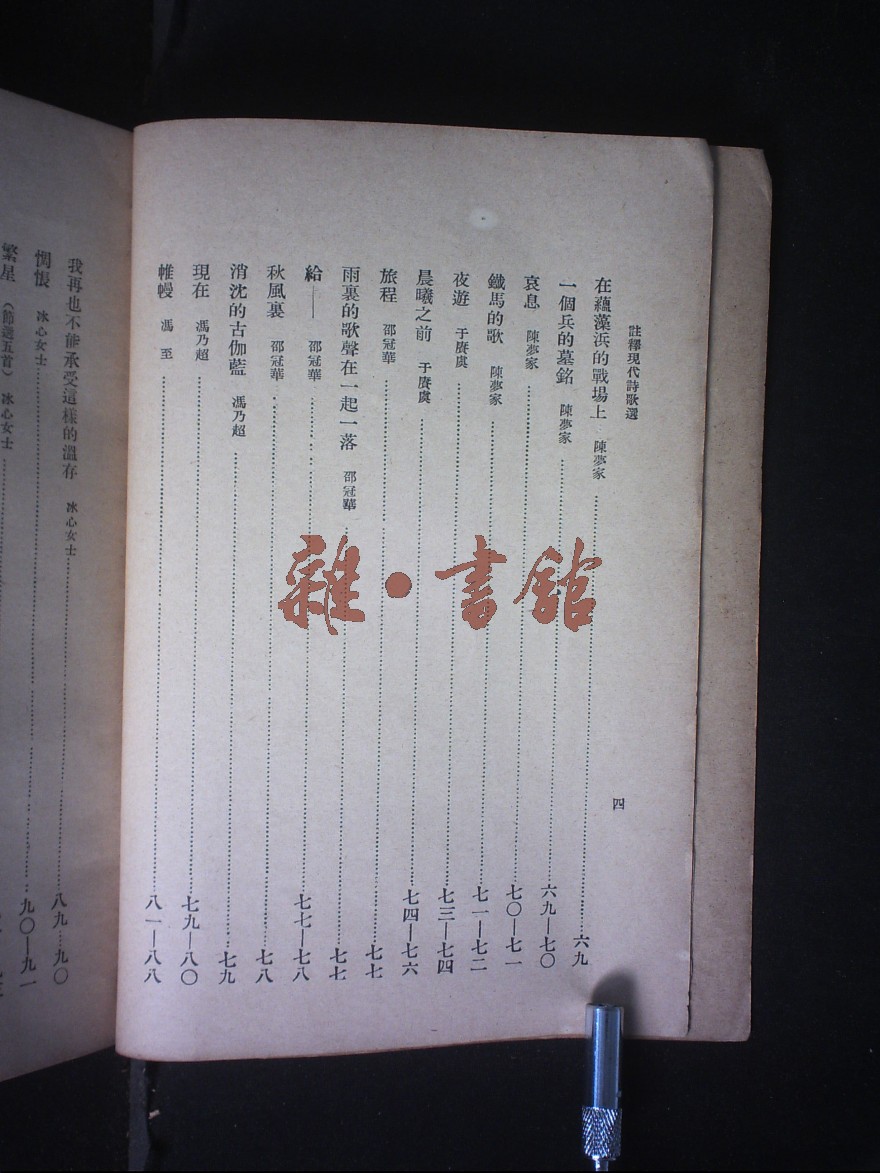 註釋現代詩歌選
四
在蘊藻浜的戰場上 陳夢家 六九
一個兵的墓銘 陳夢家 六九—七〇
哀息 陳夢家 七〇—七一
鐵馬的歌 陳夢家 七一—七二
夜遊 于賡虞 七三—七四
晨曦之前 于賡虞 七四—七六
旅程 邵冠華 七七
雨裏的歌聲在一起一落 邵冠華 七七
給—— 邵冠華 七七—七八
秋風裏 邵冠華 七八
消沈的古伽藍 馮乃超 七九
現在 馮乃超 七九—八〇
帷幔 馮至 八一—八八
我再也不能承受這樣的溫存 冰心女士 八九…九〇
惆悵 冰心女士 九〇—九一
繁星 (節選五首) 冰心女士
雜·書館